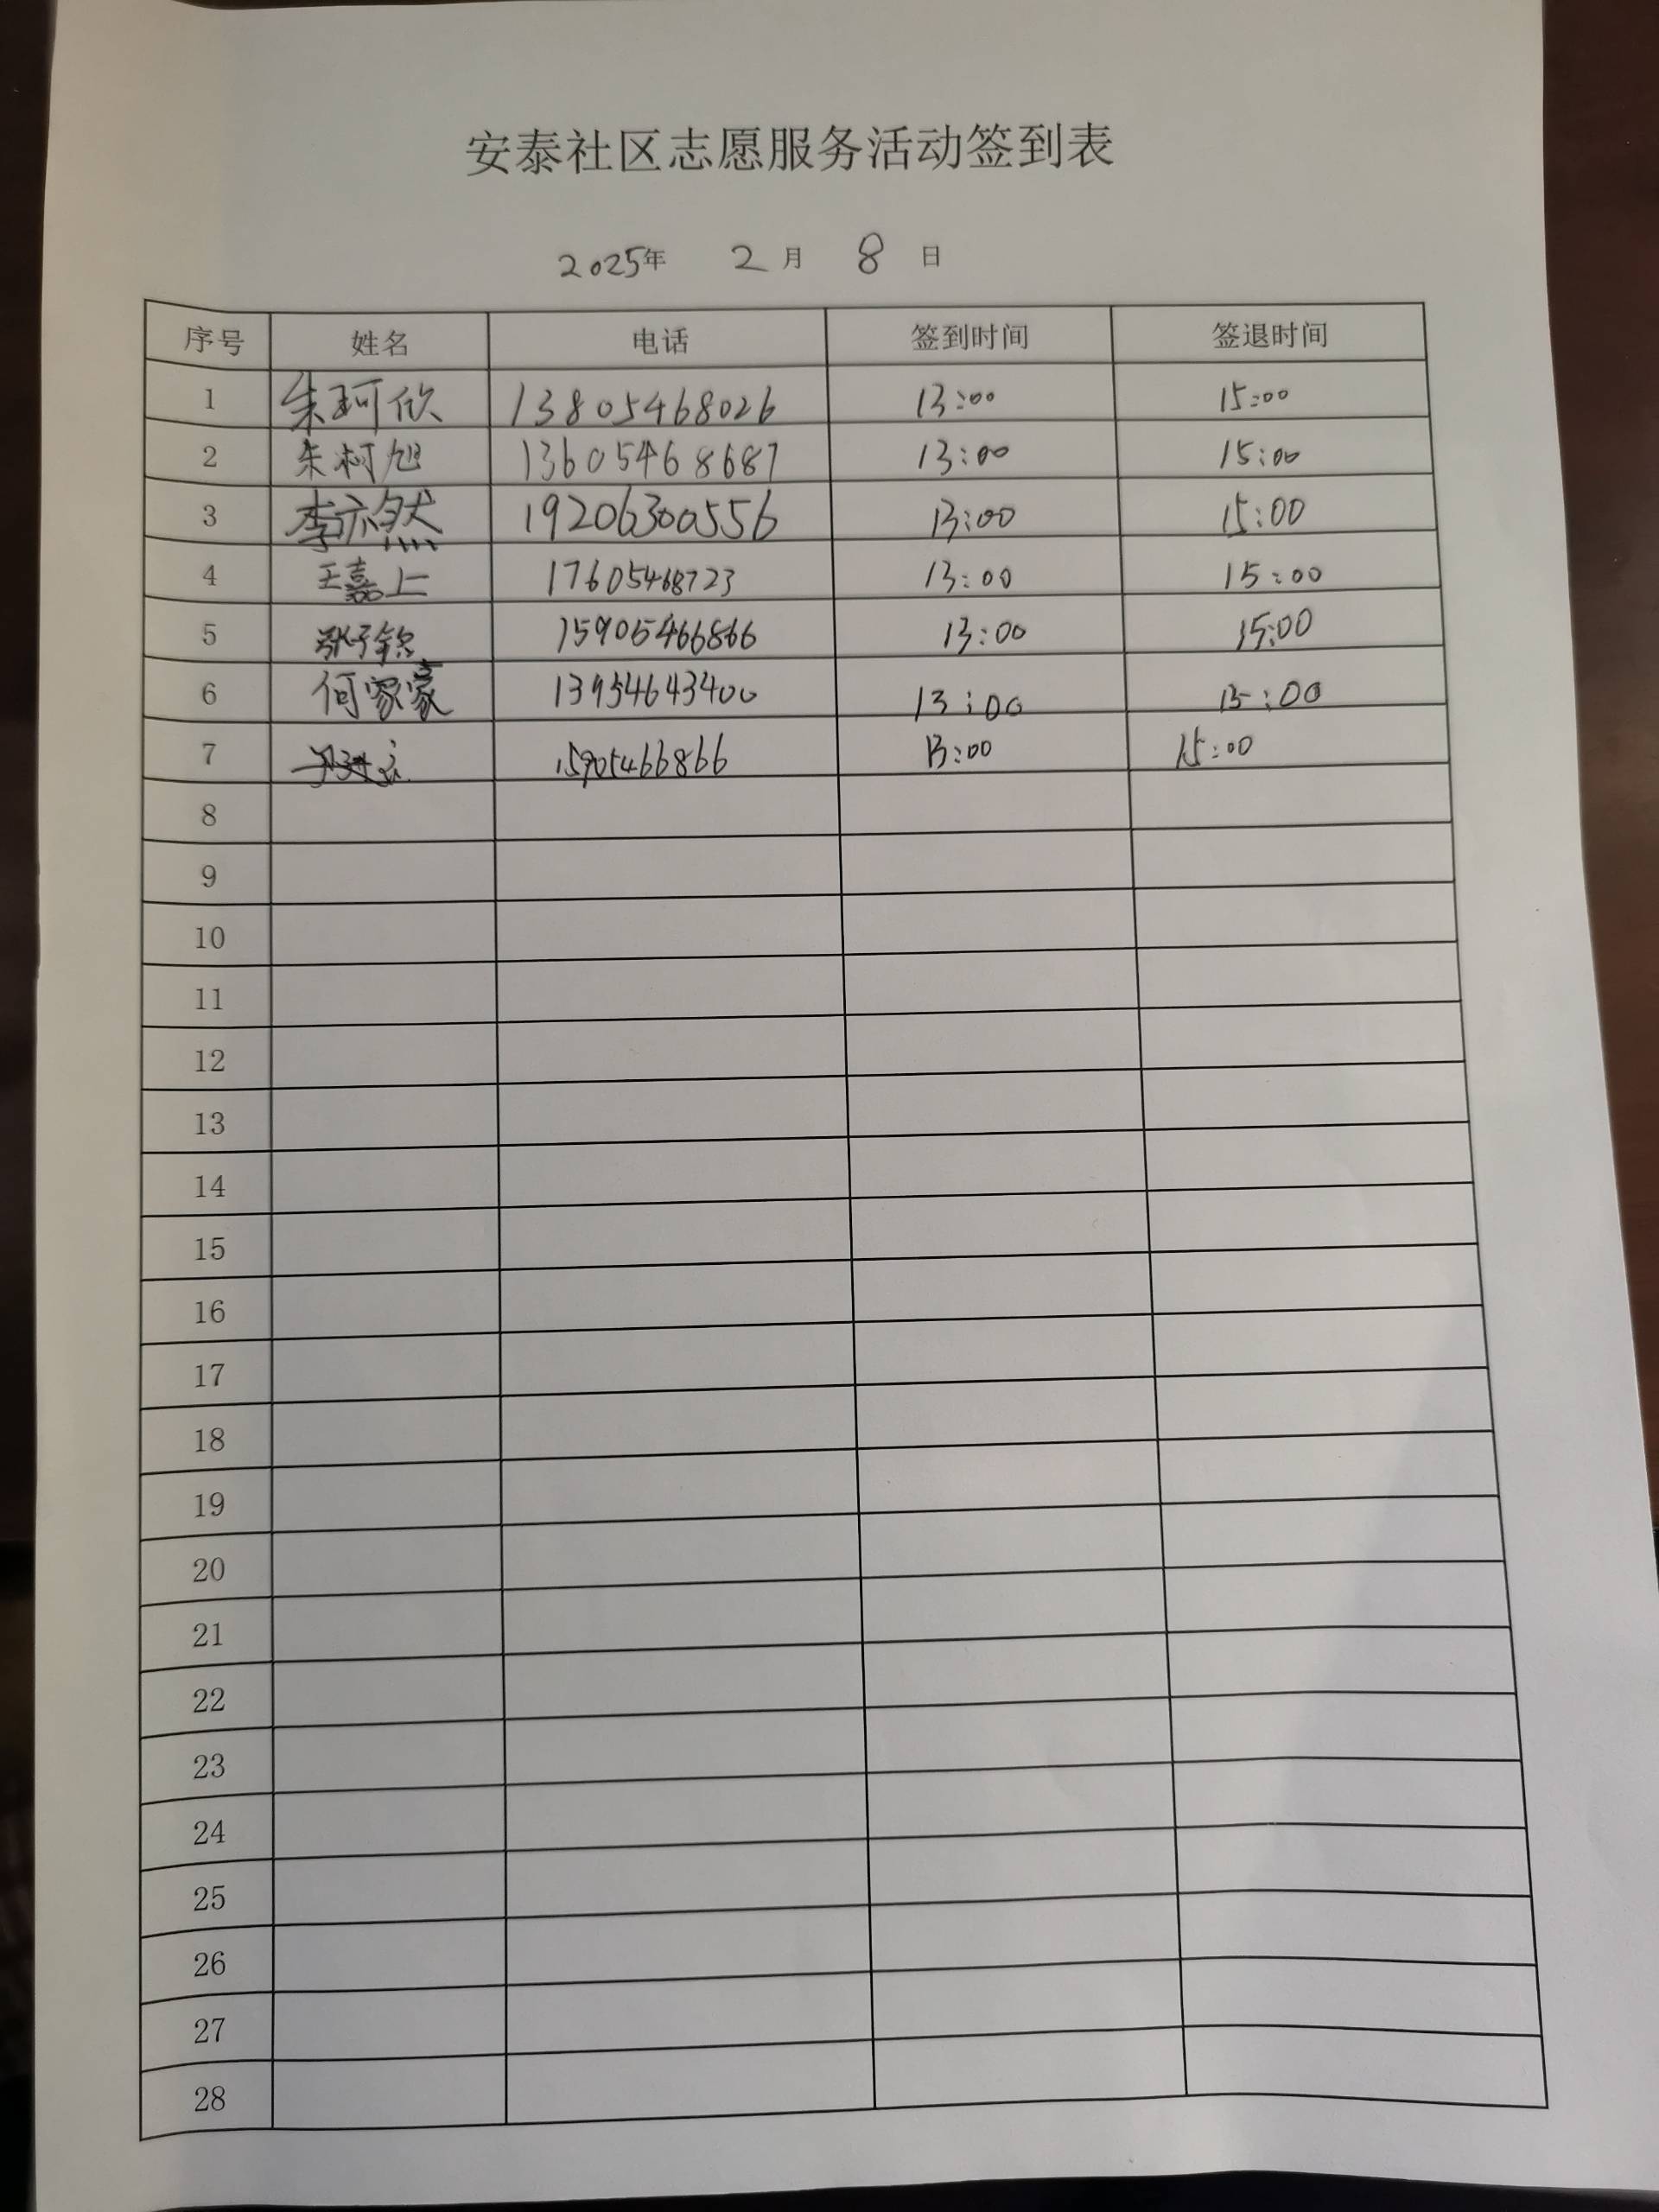 安泰社区志愿服务活动签到表
2025年 2 月 8 日
序号 姓名 电话 签到时间 签退时间
1 朱珂欣 13805468026 13:00 15:00
2 朱柯旭 13605468687 13:00 15:00
3 李亦然 19206300556 13:00 15:00
4 王嘉上 17605468723 13:00 15:00
5 张子 15905466866 13:00 15:00
6 何家豪 13954643400 13:00 15:00
7 15905466866 13:00 15:00
8
9
10
11
12
13
14
15
16
17
18
19
20
21
22
23
24
25
26
27
28